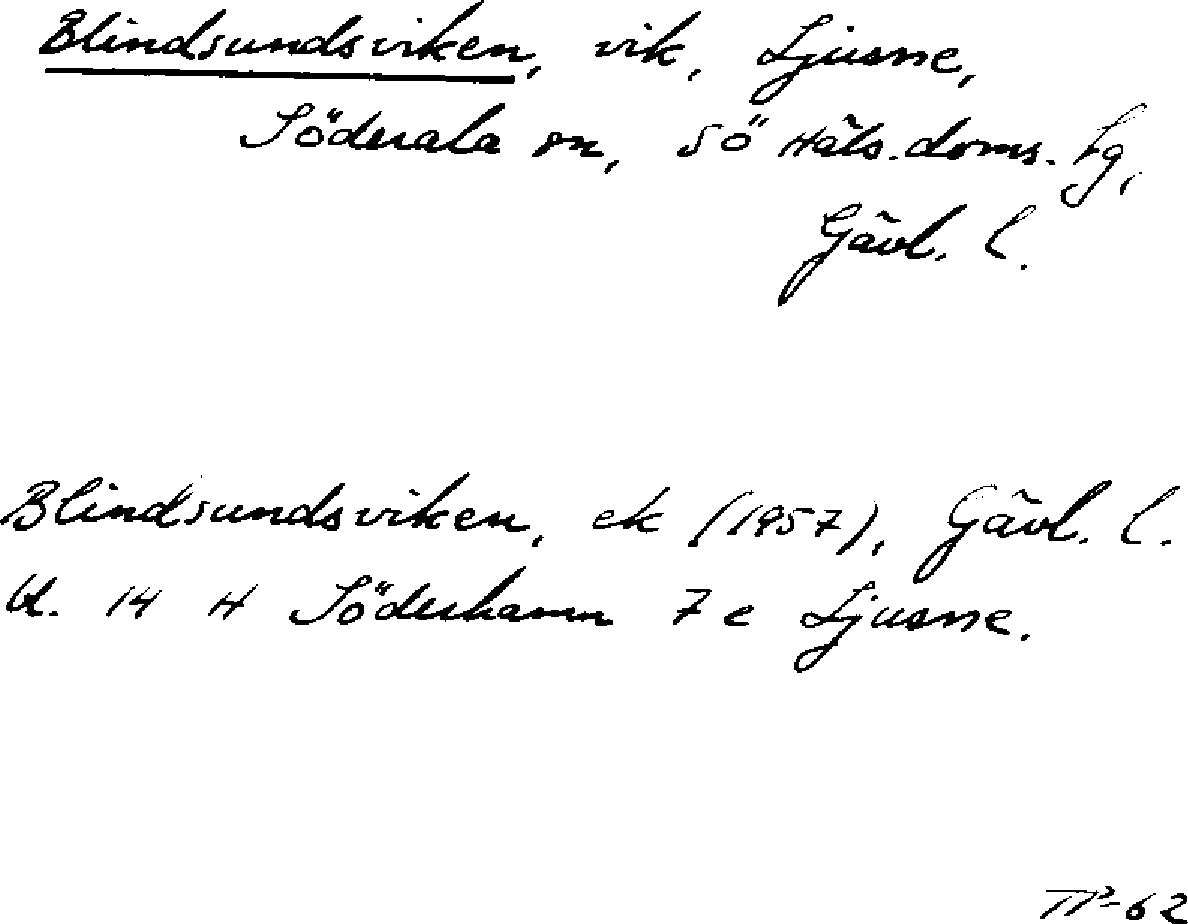 Blindsundsviken, vik, Ljusne,
Söderala sn, Sö Häls. doms. Lg,
Gävl. l.
Blindsundsviken, ek (1957), Gävl. l.
bl. 14 H Söderhamn 7 e Ljusne.
-62